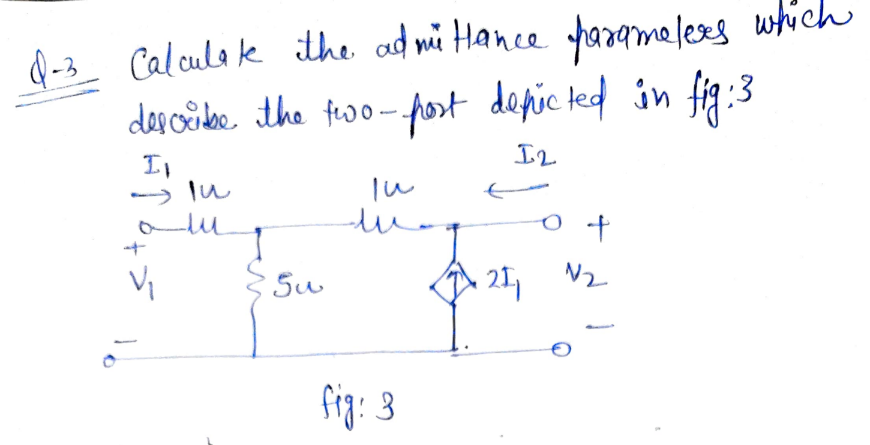 Q-3 Calculate the admittance parameters which
describe the two-port depicted in fig:3
I1 I2
1u 1u
+ +
V1 5u 2I1 V2
- -
fig: 3